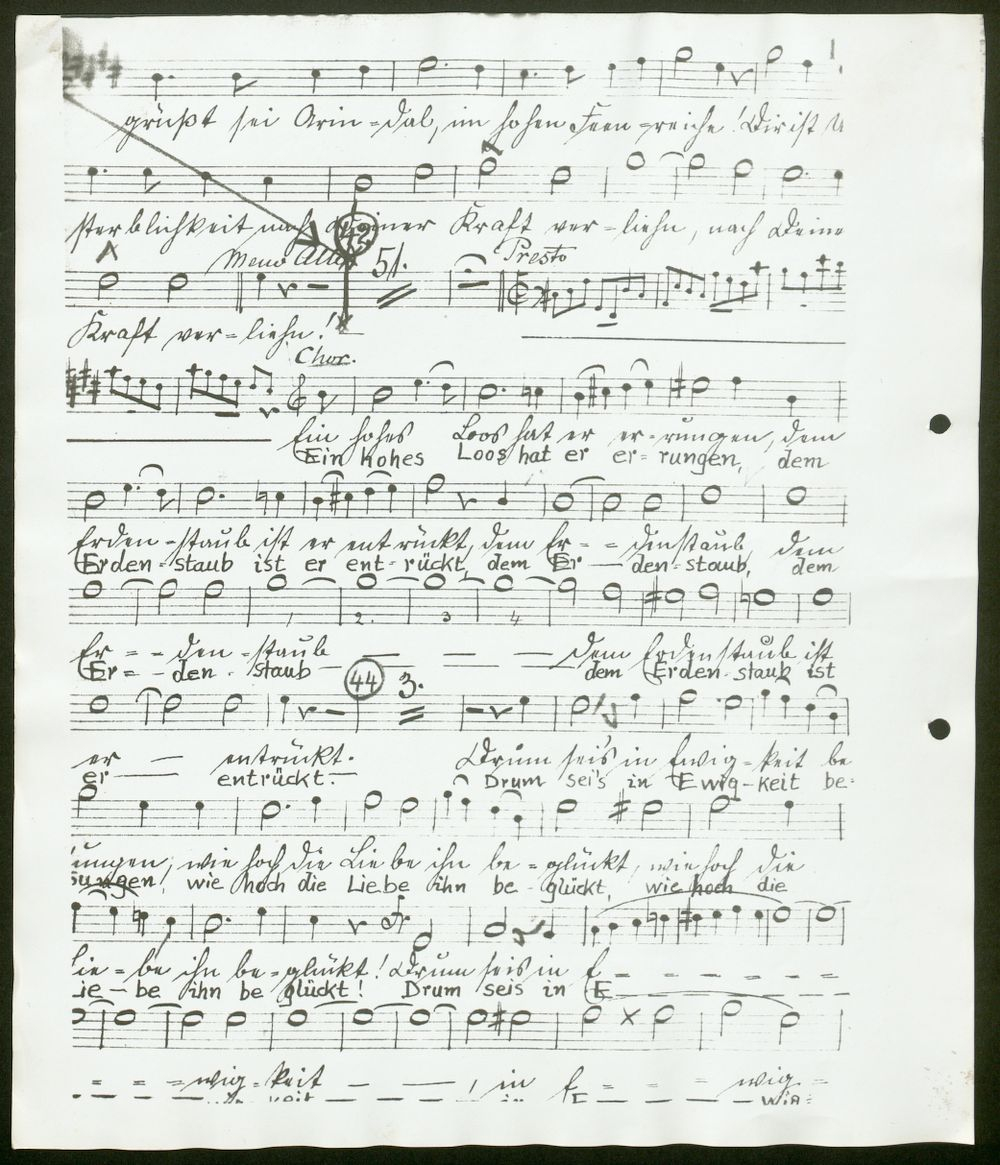 grüßt sei Arin-dal, im hohen Feen-reiche! Dir ist
sterblichkeit nach Deiner Kraft ver-liehn, nach Deine
Meno Allo 43 51. Presto
Kraft ver-liehn!
Chor.
Ein hohes Loos hat er er-rungen, dem
Ein hohes Loos hat er er-rungen, dem
Erden-staub ist er entrückt, dem Er--denstaub, dem
Erden-staub ist er ent-rückt, dem Er—den-staub, dem
1 2. 3 4
Er--den-staub — — — dem Erdenstaub ist
Er--den-staub dem Erden-staub ist
44 3.
er — entrückt. Drum sei's in Ewig-keit be
er— entrückt.— Drum sei's in Ewig-keit be-
ungen, wie hoch die Liebe ihn be-glückt, wie hoch die
sungen, wie hoch die Liebe ihn be-glückt, wie hoch die
Lie-be ihn be-glückt! Drum seis in E------
ie-be ihn be glückt! Drum seis in E
---wig-keit — —, in E---wig-
keit in E wig-